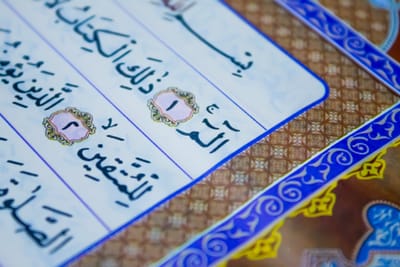 بِسْمِ
الٓمٓ ۚ ١ ذٰلِكَ الْكِتَابُ لَا
لِلْمُتَّقِينَ ۙ ٢ الَّذِينَ
الصَّلٰوةَ